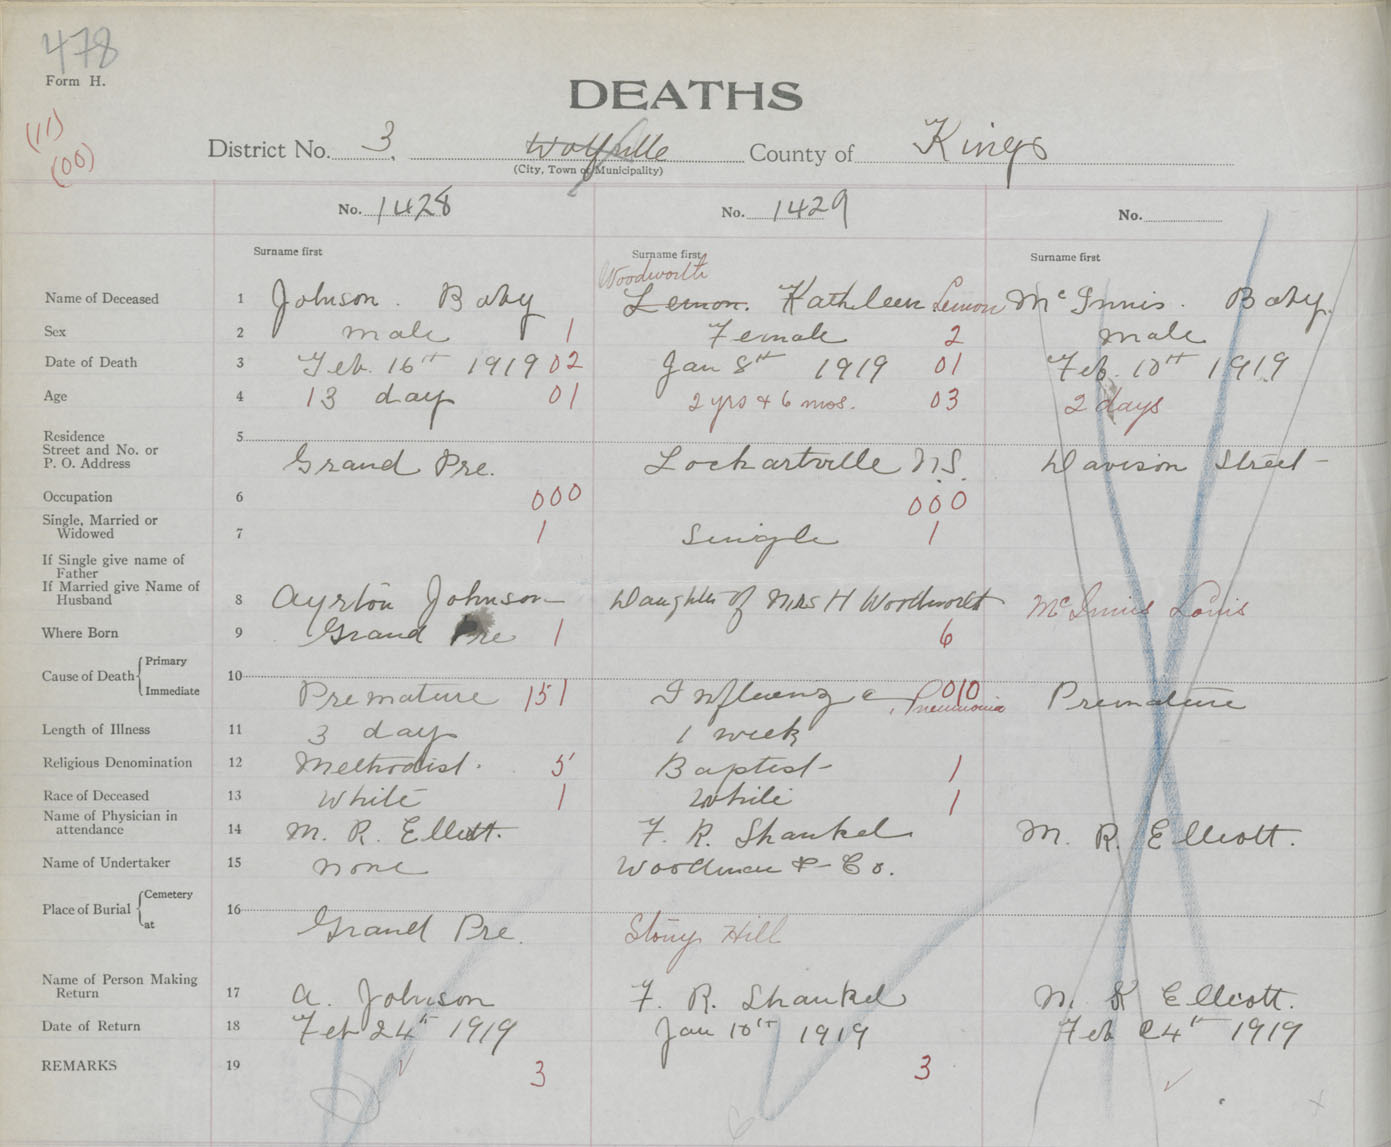 478
Form H.
(11)
(00)
DEATHS
District No. 3. Wolfville County of Kings
(City, Town or Municipality)
No. 1428 No. 1429 No.
Surname first Surname first Surname first
Woodworth
Name of Deceased 1 Johnson. Baby Lemon. Kathleen Lemon McInnis. Baby.
Sex 2 male 1 Female 2 male
Date of Death 3 Feb. 16th 1919 02 Jan 8th 1919 01 Feb. 10th 1919
Age 4 13 day 01 2 yrs & 6 mos. 03 2 days
Residence 5
Street and No. or
P. O. Address Grand Pre. Lockartville N.S. Davison Street
Occupation 6 000 000
Single, Married or
Widowed 7 1 Single 1
If Single give name of
Father
If Married give Name of
Husband 8 Ayrton Johnson Daughter of Mrs H Woodworth McInnis Louis
Where Born 9 Grand Pre 1 6
Cause of Death Primary 10
Immediate Premature 151 Influenza, Pneumonia 010 Premature
Length of Illness 11 3 day 1 week
Religious Denomination 12 Methodist. 5 Baptist 1
Race of Deceased 13 White 1 White 1
Name of Physician in
attendance 14 M. R. Elliott. F. R. Shankel M. R. Elliott.
Name of Undertaker 15 none Woodman & Co.
Place of Burial Cemetery 16
at Grand Pre. Stony Hill
Name of Person Making
Return 17 A. Johnson F. R. Shankel M. R Elliott.
Date of Return 18 Feb 24th 1919 Jan 10th 1919 Feb 24th 1919
REMARKS 19 3 3